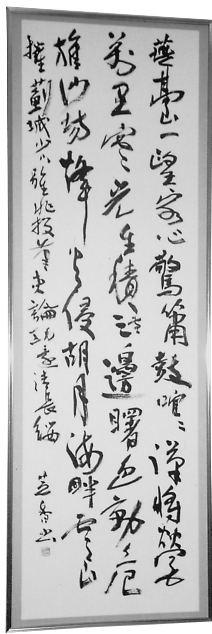 燕臺一望客心驚簫鼓喧々漢將營
萬里寒光生積雪三邊曙色動危
旌沙場烽火侵胡月海畔雲山
擁薊城少小雖非投筆吏論功還欲請長纓
芝香書